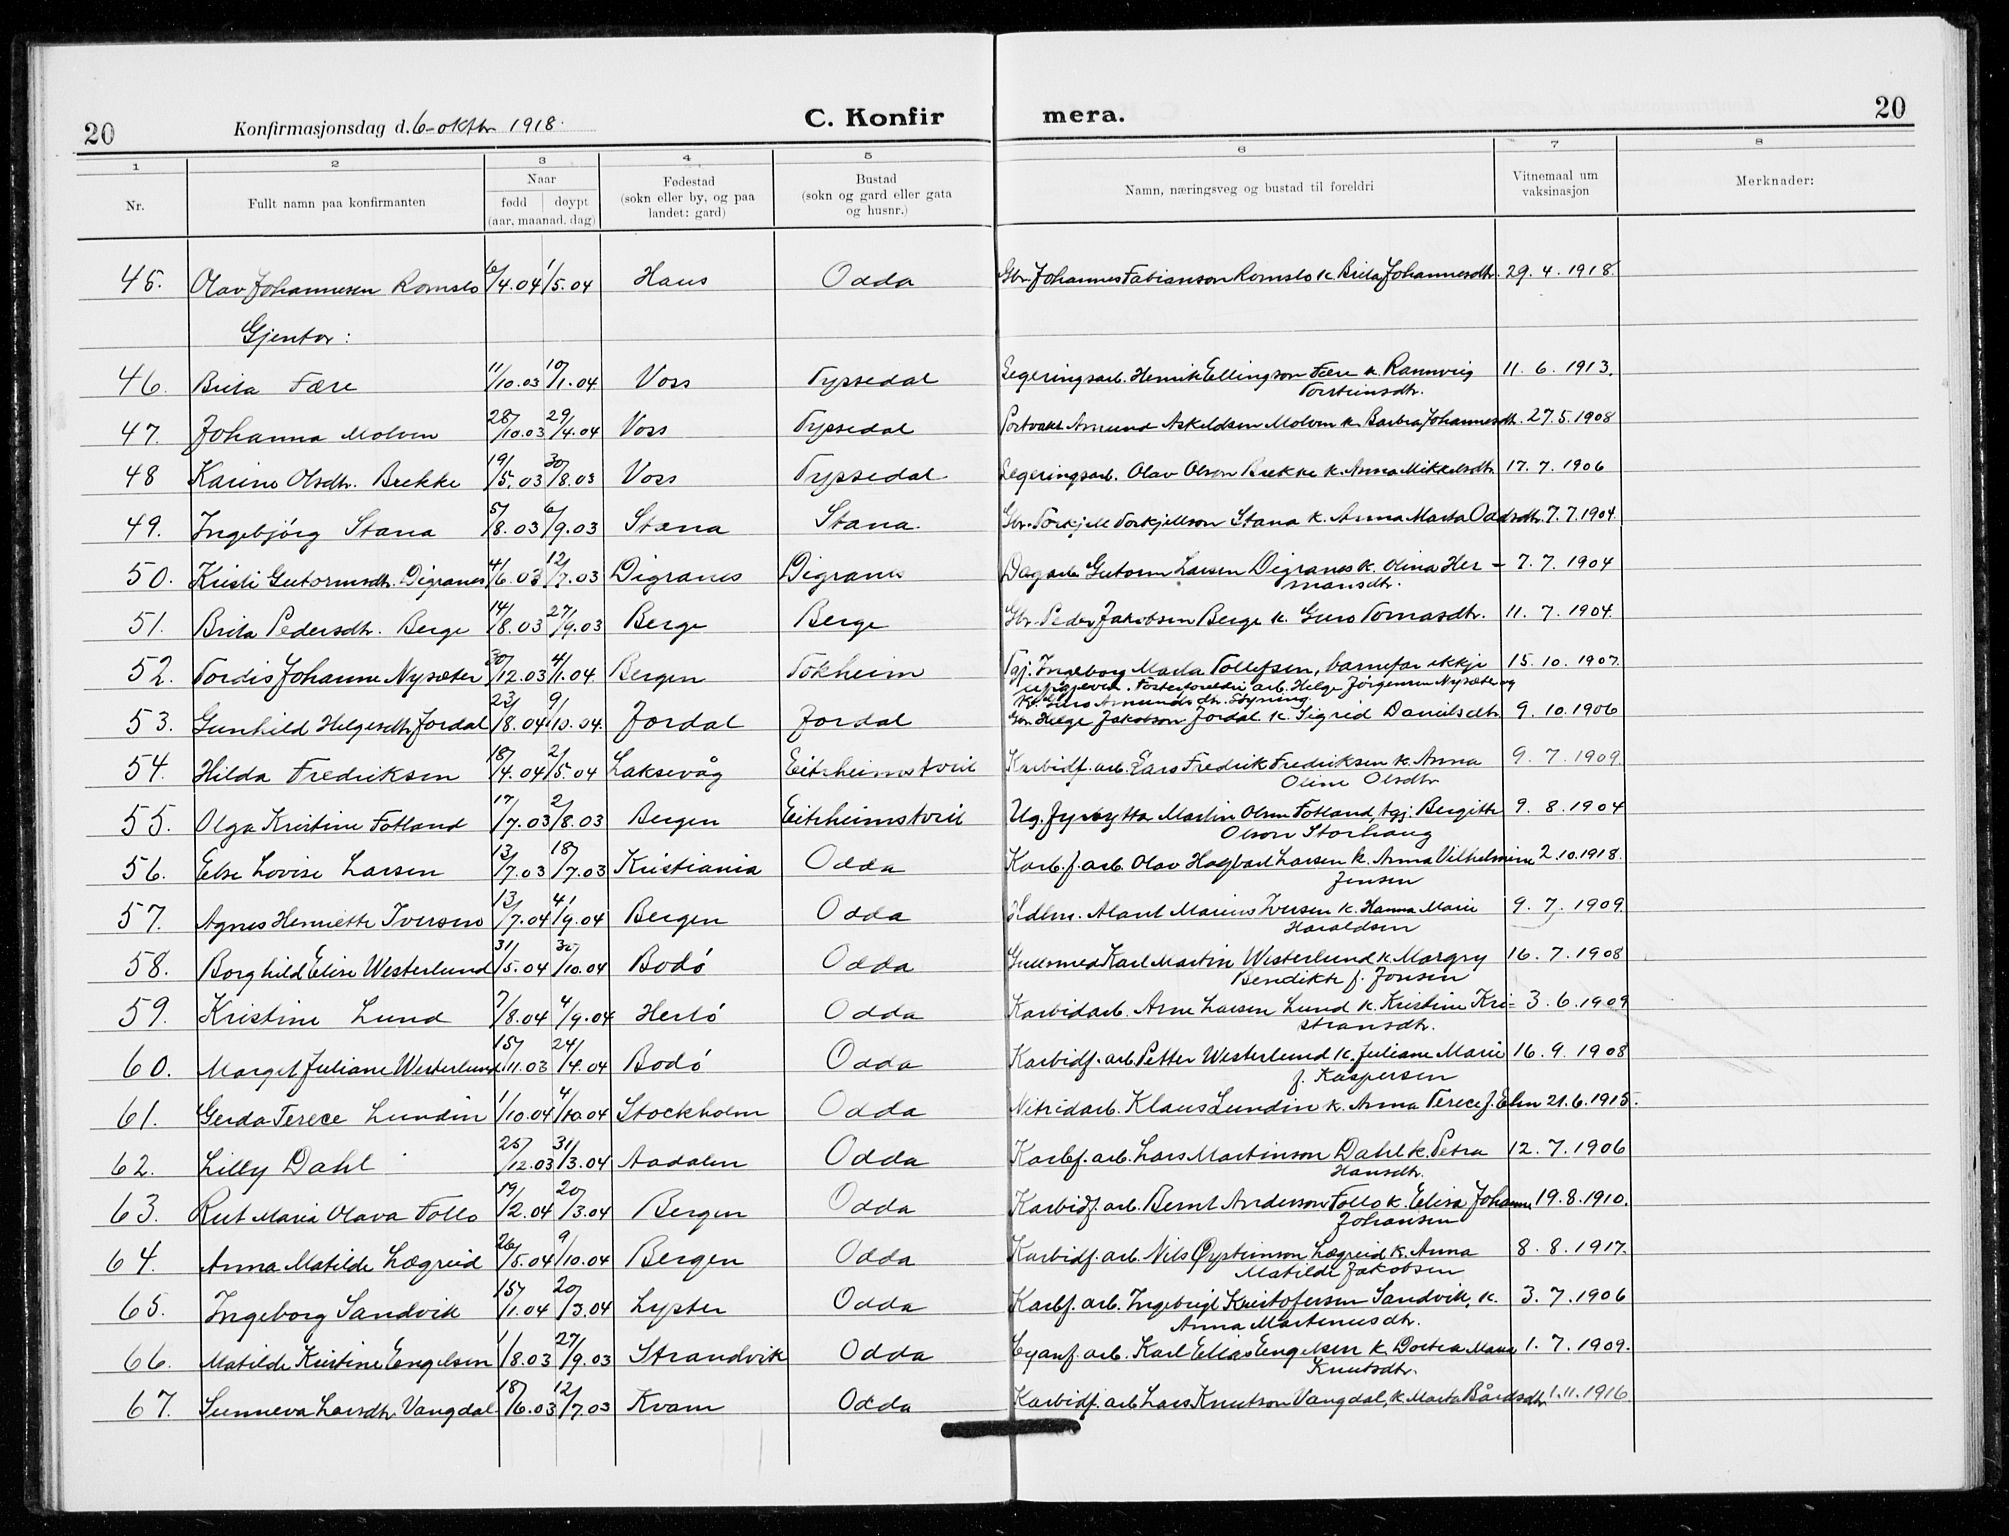 20 Konfirmasjonsdag d. 6-oktbr 1918. C. Konfir mera. 20
1 2 3 4 5 6 7 8
Nr. Fullt namn paa konfirmanten Naar fødd døypt (aar, maanad, dag) Fødestad (sokn eller by, og paa landet: gard) Bustad (sokn og gard eller gata og husnr.) Namn, næringsveg og bustad til foreldri Vitnemaal um vaksinasjon Merknader:
45. Olav Johannesen Romslo 6/4.04 1/5.04 Haus Odda Gbr. Johannes Fabianson Romslo k. Brita Johannesdtr. 29. 4. 1918.
Gjentor:
46. Brita Fære 11/10.03 10/1.04 Voss Tyssedal Legeringsarb. Henrik Ellingson Fære k. Rannveig 11. 6. 1913.
Torsteinsdtr.
47. Johanna Molven 28/10.03 29/4.04 Voss Tyssedal Portvakt Amund Askeldsen Molven k. Barbra Johannesdtr. 27.5.1908
48 Karine Olsdtr. Brekke 19/5.03 30/8.03 Voss Tyssedal Legeringsarb. Olav Olson Brekke k. Anna Mikkelsdtr. 17. 7. 1906
49. Ingebjörg Stana 5/8.03 6/9.03 Stana Stana. Gbr. Torkjell Torkjellson Stana k. Anna Marta Oddsdtr. 7.7.1904
50. Kristi Gutormsdtr. Digranes 4/6.03 12/7.03 Digranes Digranes Dagarb. Gutorm Larsen Digranes k. Olina Her- 7. 7. 1904
mansdtr.
51. Brita Pedersdtr. Berge 14/8.03 27/9.03 Berge Berge Gbr. Peder Jakobsen Berge k. Guro Tomasdtr. 11. 7. 1904.
52. Tordis Johanne Nysæter 30/12.03 4/1.04 Bergen Tokheim Tgj. Ingeborg Marta Tollefsen, barnefar ikkje 15. 10. 1907.
uppgjeven. Fosterforeldri arb. Helge Jörgensen Nysæter og
k. Guro Amundsdtr.
53. Gunhild Helgesdtr Jordal 23/8.04 9/10.04. Jordal Jordal Gbr. Helge Jakobson Jordal k. Sigrid Danielsdtr. 9. 10. 1906
54. Hilda Fredriksen 18/4.04 2/5.04 Laksevåg Eitrheimstveit Karbidf. arb. Lars Fredrik Fredriksen k. Anna 9. 7. 1909.
Oline Olsdtr
55. Olga Kristine Fotland 17/7.03 2/8.03 Bergen Eitrheimstveit Ug. fyrbytar Martin Olsen Fotland, tgj. Bergitte 9. 8. 1904
Olson Storhaug
56. Else Lovise Larsen 13/7.03 18/7.03 Kristiania Odda Karb.f. arb. Olav Hagbart Larsen k. Anna Vilhelmine 2.10.1918.
Jensen
57. Agnes Henriette Iversen 13/7.04 4/9.04 Bergen Odda Hdlm. Marius Iversen k. Hanna Marie 9. 7. 1909.
Haraldsen
58. Borghild Elise Westerlund 31/5.04 30/10.04 Bodö Odda Gullsmed Karl Martin Westerlund k. Margry 16. 7. 1908
Bendikte f. Jonsen
59. Kristine Lund 7/8.04 4/9.04 Herlö Odda Karbidarb. Arne Larsen Lund k. Kristine Kri= 3. 6. 1909
stiansdtr.
60. Margit Juliane Westerlund 15/11.03 24/4.04 Bodö Odda Karbidf. arb. Petter Westerlund k. Juliane Marie 16. 9. 1908
f. Kaspersen
61. Gerda Terece Lundin 1/10.04 4/10.04 Stockholm Odda Nitridarb. Klaus Lundin k. Anna Terece f. Elm 21.6.1915.
62. Lilly Dahl 25/12.03 31/3.04 Aadalen Odda Karbf. arb. Lars Martinson Dahl k. Petra 12. 7. 1906
Hansdtr.
63. Rut Maria Olava Follo 19/2.04 20/3.04 Bergen Odda Karbidf. arb. Bernt Anderson Follo k. Elisa Johanne 19.8.1910.
Johansen
64. Anna Matilde Lægreid 26/5.04 9/10.04 Bergen Odda Karbidf. arb. Nils Øysteinson Lægreid k. Anna 8. 8. 1917.
Matilde Jakobsen
65. Ingeborg Sandvik 15/1.04 20/3.04 Lyster Odda Karbf. arb. Ingebrigt Kristofersen Sandvik, k. 3. 7. 1906
Anna Martinusdtr.
66. Matilde Kristine Engelsen 1/8.03 27/9.03 Strandvik Odda Cyanf. arb. Karl Elias Engelsen k. Dortea Maria 1. 7. 1909.
Knutsdtr.
67. Sunneva Larsdtr. Vangdal 18/6.03 12/7.03 Kvam Odda Karbidf. arb. Lars Knutson Vangdal, k. Marta Bårdsdtr. 1.11.1916.